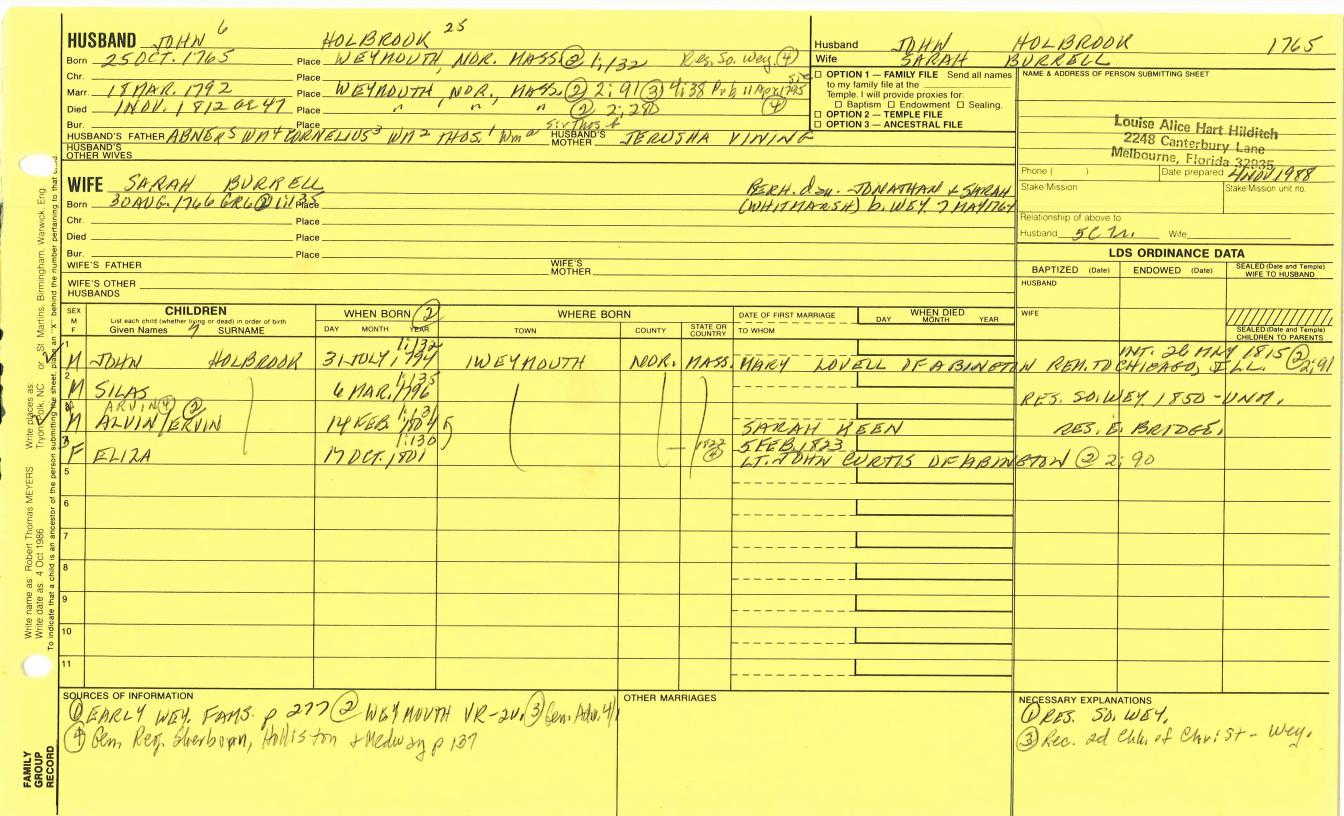 HUSBAND JOHN 6 HOLBROOK 25
Born 25 OCT. 1765 Place WEYMOUTH, NOR. MASS. ② 1;132 Res. So. Wey. ④
Chr. Place
Marr. 18 MAR. 1792 Place WEYMOUTH, NOR., MASS. ② 2; 91 ③ 4;38
Died 1 NOV. 1812 AE 47 Place " " " ② 2; 280 ④
Bur. Place
HUSBAND'S FATHER ABNER 5 WM 4 CORNELIUS 3 WM 2 THOS. 1 Wm HUSBAND'S MOTHER JERUSHA VINING
HUSBAND'S OTHER WIVES
WIFE SARAH BURRELL
PERH. dau. JONATHAN & SARAH
Born 30 AUG. 1766 Place
(WHITMARSH) b. WEY. 7 MAY 1764
Chr. Place
Died Place
Bur. Place
WIFE'S FATHER WIFE'S MOTHER
WIFE'S OTHER HUSBANDS
Husband JOHN HOLBROOK 1765
Wife SARAH BURRELL
OPTION 1 — FAMILY FILE Send all names
to my family file at the
Temple. I will provide proxies for:
Baptism Endowment Sealing.
OPTION 2 — TEMPLE FILE
OPTION 3 — ANCESTRAL FILE
NAME & ADDRESS OF PERSON SUBMITTING SHEET
Louise Alice Hart Hilditch
2248 Canterbury Lane
Melbourne, Florida 32935
Phone ( ) Date prepared 4 NOV 1988
Stake Mission Stake Mission unit no.
Relationship of above to
Husband 5C Wife
LDS ORDINANCE DATA
BAPTIZED (Date) ENDOWED (Date) SEALED (Date and Temple) WIFE TO HUSBAND
HUSBAND
WIFE
SEALED (Date and Temple) CHILDREN TO PARENTS
SEX M F
CHILDREN
List each child (whether living or dead) in order of birth
Given Names 7 SURNAME
WHEN BORN ②
DAY MONTH YEAR
WHERE BORN
TOWN COUNTY STATE OR COUNTRY
DATE OF FIRST MARRIAGE
TO WHOM
WHEN DIED
DAY MONTH YEAR
1 1;132 INT. 26 MAY 1815 ②
M JOHN HOLBROOK 31 JULY 1794 WEYMOUTH NOR. MASS. MARY LOVELL OF ABINGTON REM. TO CHICAGO, ILL. 2;91
2 1;135
M SILAS 6 MAR. 1796 RES. SO. WEY 1850 - UNM.
ARVIN ④ ② 1;131
M ALVIN/ERVIN 14 FEB. 1804 5 SARAH KEEN RES. E. BRIDGE.
3 1;130 1822 ④ 5 FEB. 1823
F ELIZA 17 OCT. 1801 LT. JOHN CURTIS OF ABINGTON ② 2; 90
5
6
7
8
9
10
11
SOURCES OF INFORMATION
① EARLY WEY. FAMS. p 277 ② WEYMOUTH VR-2v. ③ Gen. Adv. 4/
④ Gen. Reg. Sherborn, Holliston & Medway p 137
OTHER MARRIAGES
NECESSARY EXPLANATIONS
① RES. SO. WEY.
③ Rec. 2d Chh. of Christ - Wey.
FAMILY GROUP RECORD
Write name as: Robert Thomas MEYERS Write places as: Tryon, Polk, NC or St. Martins, Birmingham, Warwick, Eng.
Write date as: 4 Oct 1986
To indicate that a child is an ancestor of the person submitting the sheet, place an "X" behind the number pertaining to that child.